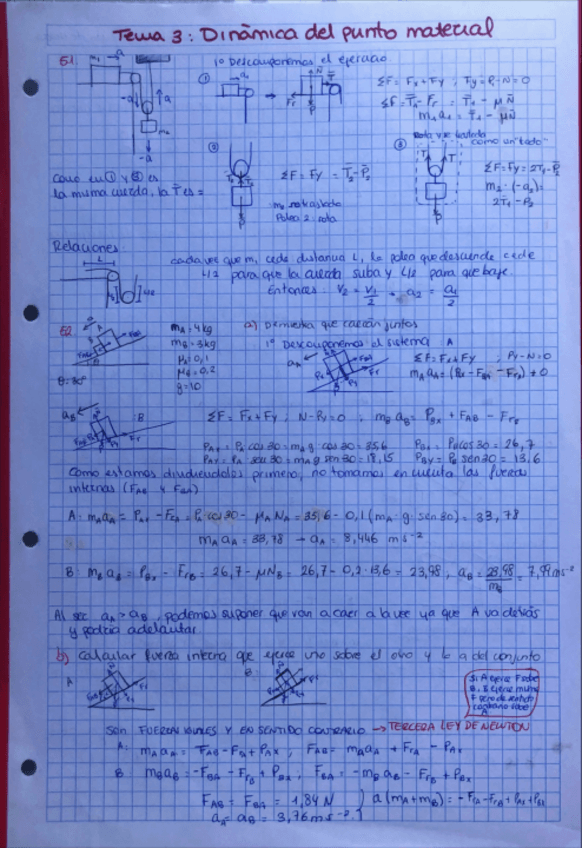 Tema 3: Dinámica del punto material
E1
1º Descomponemos el ejercicio.
ΣF = Fx + Fy ; Ty = P - N = 0
ΣF = T1 - Fr = T1 - μN
m1a1 = T1 - μN
como un "todo"
Como en ① y ② es
la misma cuerda, la T es =
ΣF = Fy = T2 - P2
m2 no traslada
Polea 2: rota
ΣF = Fy = 2T1 - P
m2 · (-a2) =
2T1 - P2
Relaciones
cada vez que m1 cede distancia L, la polea que desciende cede
L/2 para que la cuerda suba y L/2 para que baje.
Entonces: v2 = v1/2 → a2 = a1/2
E2
θ = 30°
mA = 4kg
mB = 3kg
μA = 0,1
μB = 0,2
g = 10
a) Demuestra que caerán juntos
1º Descomponemos el sistema A
ΣF = Fx + Fy ; Py - N = 0
mA aA = (Px - FBA - FrA) + 0
:B
ΣF = Fx + Fy ; N - Py = 0 ; mB aB = PBx + FAB - FrB
PAx = PA cos 30 = mA g · cos 30 = 35,6
PBx = PB cos 30 = 26,7
PAy = PA sen 30 = mA g sen 30 = 18,15
PBy = PB sen 30 = 13,6
Como estamos dividiendolos primero, no tomamos en cuenta las fuerzas
internas (FAB y FBA)
A: mA aA = PAx - FrA = PA cos 30 - μA NA = 35,6 - 0,1 (mA · g · sen 30) = 33,78
mA aA = 33,78 → aA = 8,446 m s-2
B: mB aB = PBx - FrB = 26,7 - μNB = 26,7 - 0,2 · 13,6 = 23,98, aB = 23,98/mB = 7,99 m s-2
Al ser aA > aB, podemos suponer que van a caer a la vez ya que A va detrás
y podría adelantar.
b) Calcular fuerza interna que ejerce uno sobre el otro y la a del conjunto
A
B
Si A ejerce F sobre
B, B ejerce misma
F pero de sentido
contrario sobre
A
SON FUERZAS IGUALES Y EN SENTIDO CONTRARIO → TERCERA LEY DE NEWTON
A: mA aA = FAB - FrA + PAx ; FAB = mA aA + FrA - PAx
B: mB aB = -FBA - FrB + PBx ; FBA = -mB aB - FrB + PBx
FAB = FBA = 1,84 N
a (mA + mB) = -FrA - FrB + PAx + PBx
aA = aB = 3,76 m s-2